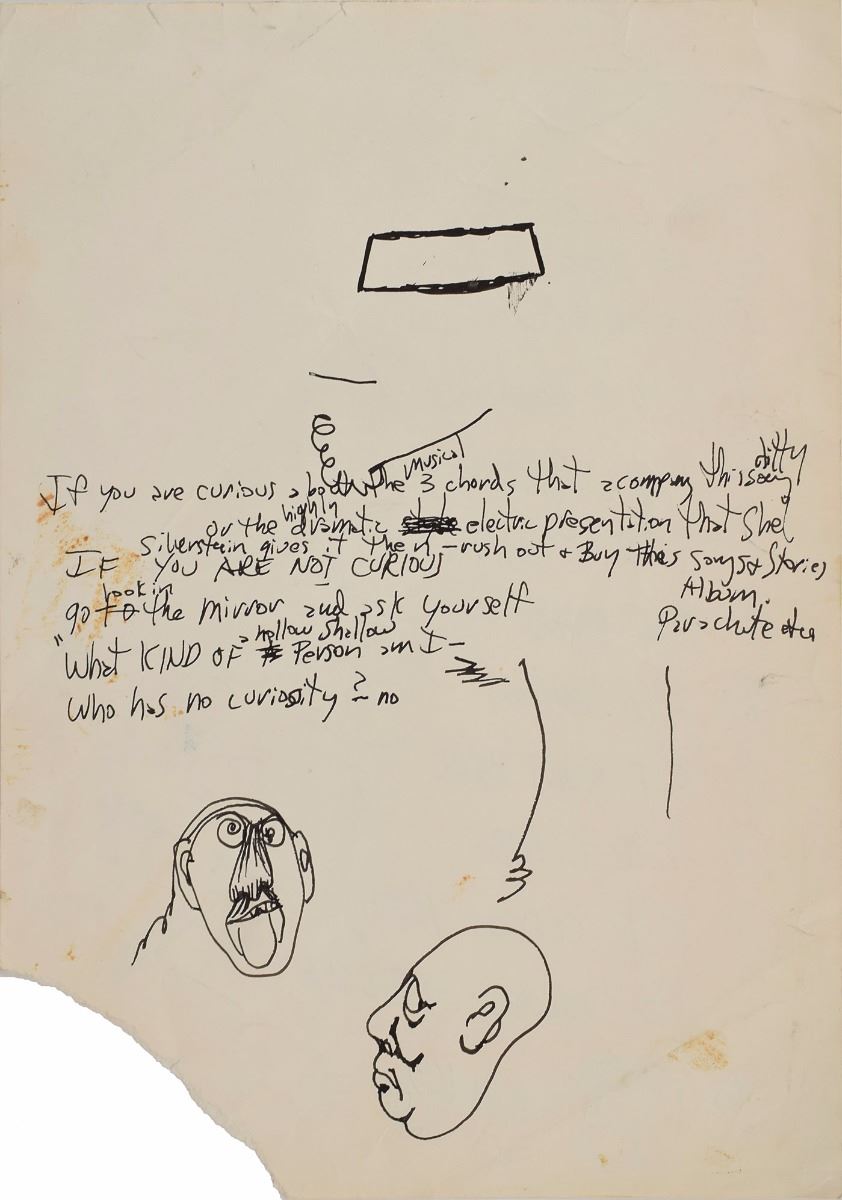 If you are curious about the musical 3 chords that acompany this song ditty
or the highly dramatic electric presentation that Shel
Silverstein gives it then - rush out & Buy this songs & Stories
Album.
Parachute
IF YOU ARE NOT CURIOUS
go to look in the mirror and ask yourself
"What KIND OF a hollow shallow Person am I -
Who has no curiosity? no